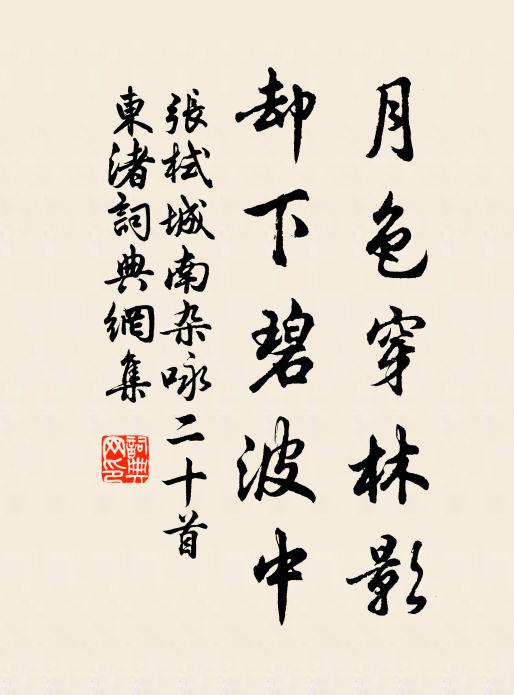 月色穿林影
却下碧波中
張栻城南杂咏二十首
東渚詞典網集
詞典
网印